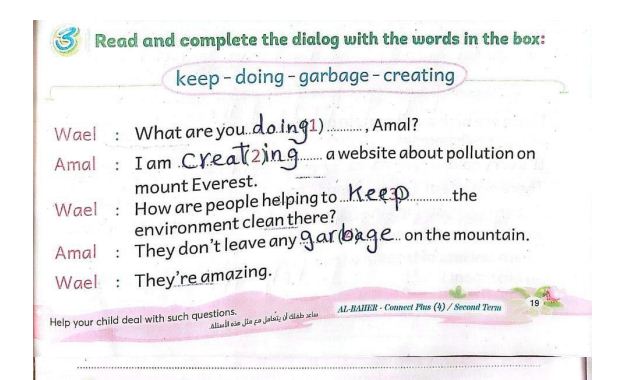 3 Read and complete the dialog with the words in the box:
keep - doing - garbage - creating
Wael : What are you..doing(1)..........., Amal?
Amal : I am .Creat(2)ing...... a website about pollution on
mount Everest.
Wael : How are people helping to...Keep(3)............the
environment clean there?
Amal : They don't leave any.garbage... on the mountain.
Wael : They're amazing.
Help your child deal with such questions.
ساعد طفلك أن يتعامل مع مثل هذه الأسئلة
AL-BAHER - Connect Plus (4) / Second Term
19